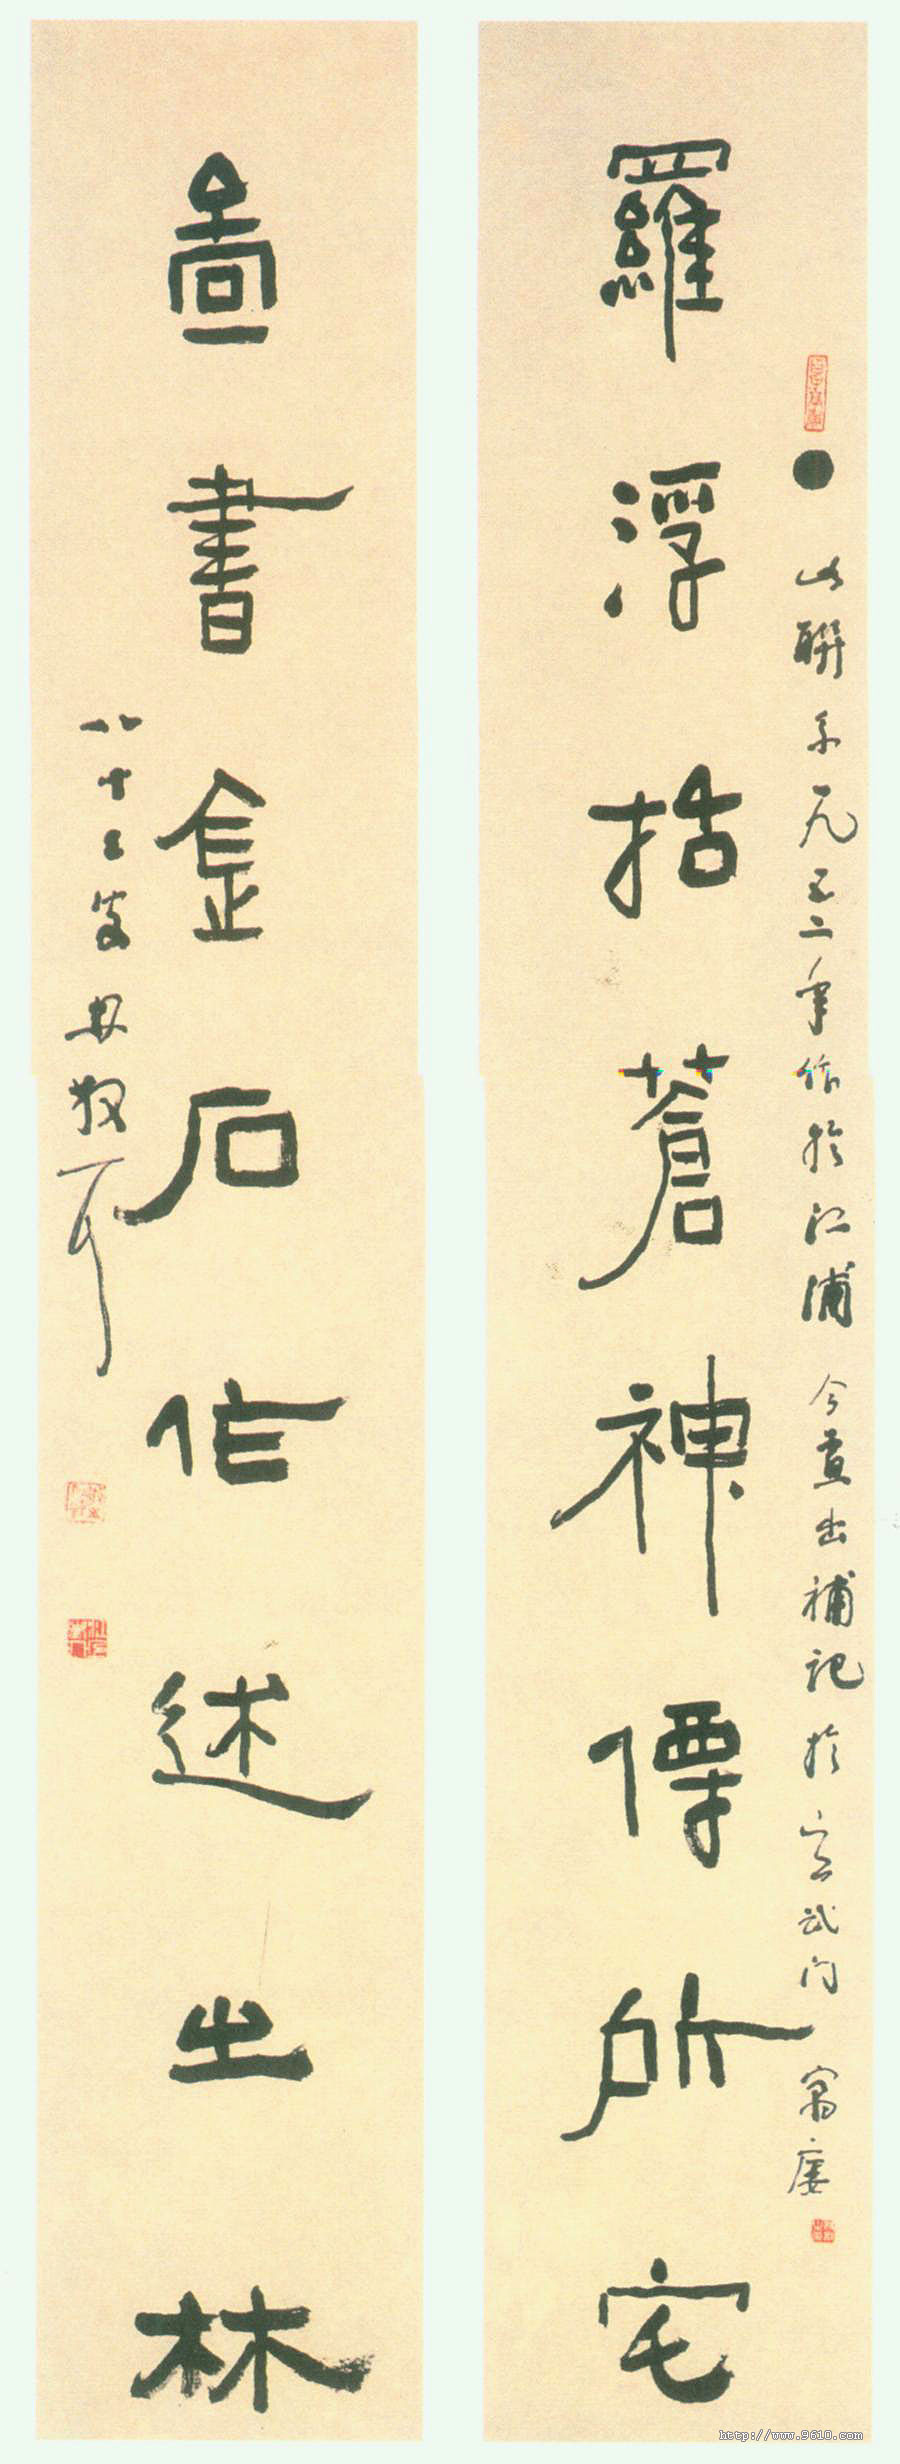 羅浮括蒼神僊所宅
此聯系一九五二年作於江浦 今重出補記於玄武门 寓廔
啚書金石作述之林
八十叟林散耳
http://www.9610.com